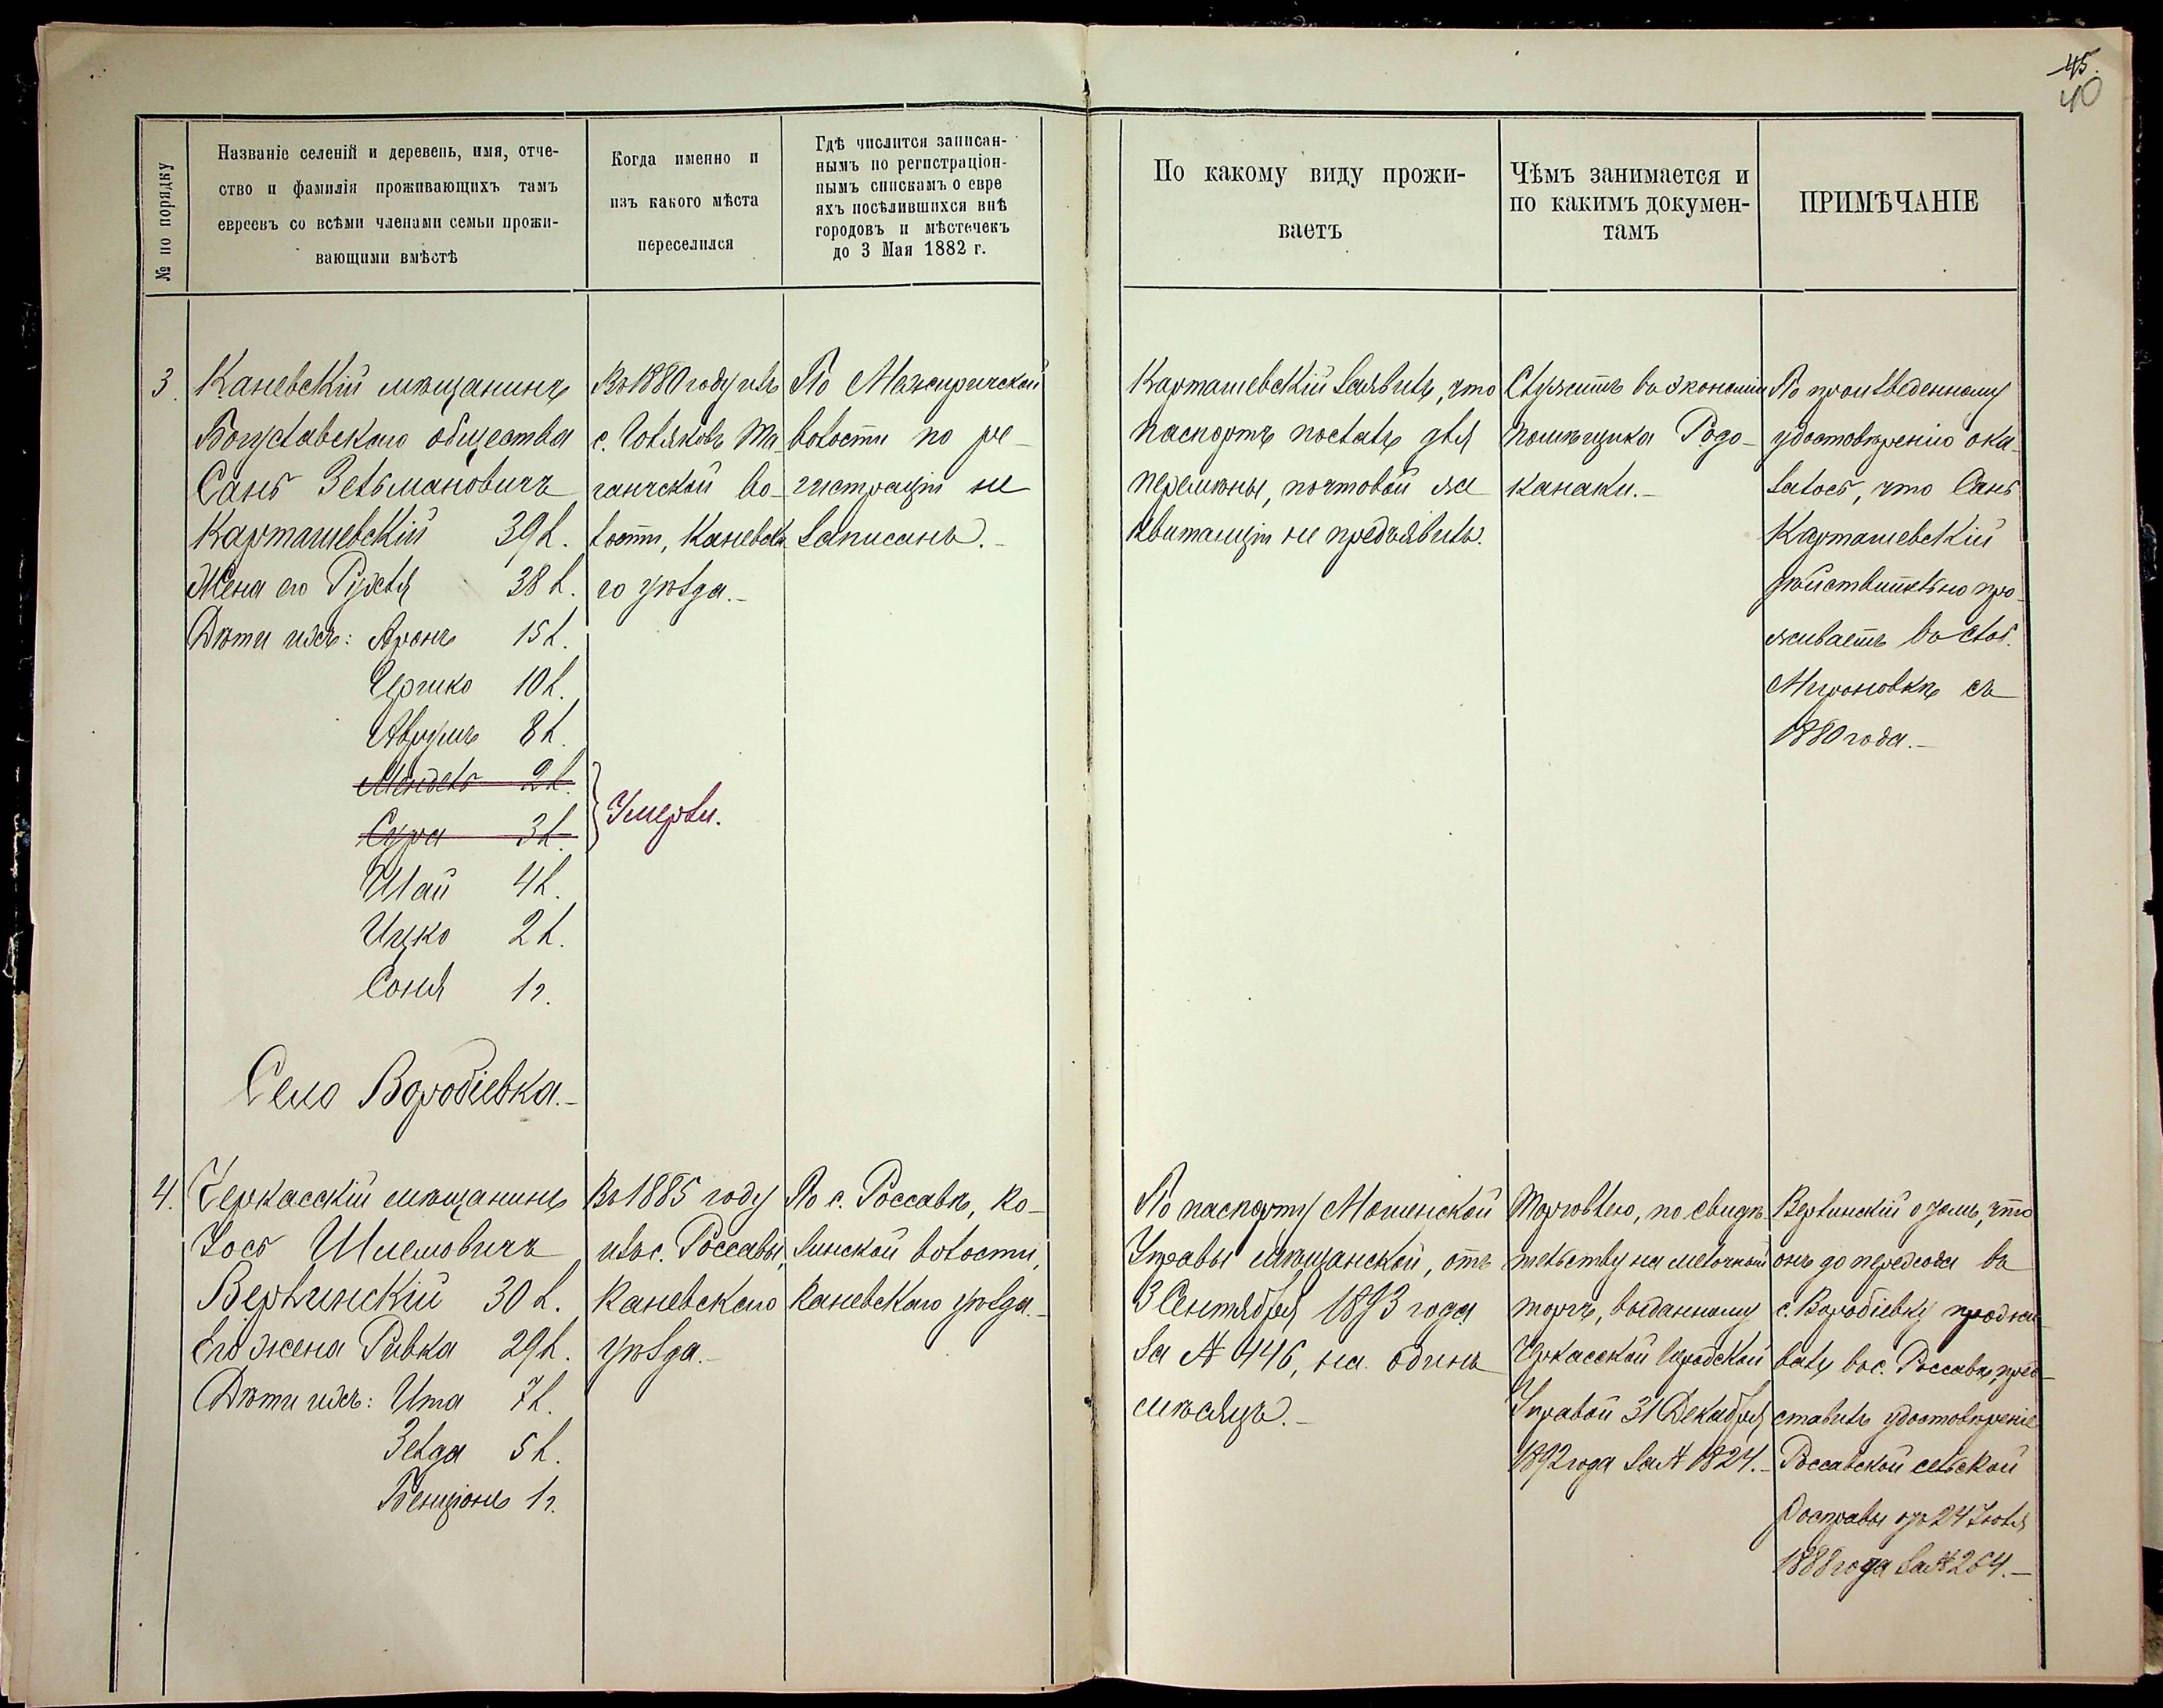 45.
40
№ по порядку
Названіе селеній и деревень, имя, отче-
ство и фамилія проживающихъ тамъ
евреевъ со всѣми членами семьи прожи-
вающими вмѣстѣ
Когда именно и
изъ какого мѣста
переселился
Гдѣ числится записан-
нымъ по регистраціон-
нымъ спискамъ о евре
яхъ посѣлившихся внѣ
городовъ и мѣстечекъ
до 3 Мая 1882 г.
По какому виду прожи-
ваетъ
Чѣмъ занимается и
по какимъ докумен-
тамъ
ПРИМѢЧАНІЕ
3.
Каневскій мѣщанинъ
Богуславскаго общества
Сань Зельмановичъ
Карташевскій 39 л.
Жена его Рухля 38 л.
Дѣти ихъ: Аронъ 15 л.
Гершко 10 л.
Аврумъ 8 л.
Мендель 2 л.
Сура 3 л.
Шай 4 л.
Ицко 2 л.
Соня 1 г.
Въ 1880 году изъ
с. Голяковъ Та-
ганчской во-
лости, Каневска
го уѣзда.-
Умерли.
По Межиричской
волости по ре-
гистраціи не
записанъ.-
Карташевскій заявилъ, что
паспортъ послалъ для
перемѣны, почтовой же
квитанціи не предъявилъ.
Служитъ въ экономіи
помѣщика Родо-
канаки.-
По произведенному
удостовѣренію ока-
залось, что Сань
Карташевскій
дѣйствительно про-
живаетъ въ слоб.
Мироновкѣ съ
1880 года.-
Село Воробіевка.-
4.
Черкасскій мѣщанинъ
Іось Шлемовичъ
Верлинскій 30 л.
Его жена Ривка 29 л.
Дѣти ихъ: Ита 7 л.
Зелда 5 л.
Бенціонъ 1 г.
Въ 1885 году
изъ с. Россавы,
Каневскаго
уѣзда.-
По с. Россавѣ, Ко-
зинской волости,
Каневскаго уѣзда.-
По паспорту Мошенской
Управы мѣщанской, отъ
3 Сентября 1893 года
за № 446, на одинъ
мѣсяцъ.-
Торговлею, по свидѣ-
тельству на мелочной
торгъ, выданному
Черкасской Городской
Управой 31 Декабря
1892 года за № 1824.-
Верлинскій о томъ, что
онъ до перехода въ
с. Воробіевку прожи-
валъ въ с. Россавѣ, пред-
ставилъ удостовѣреніе
Россавской сельской
Росправы отъ 24 Іюля
1888 года за № 264.-